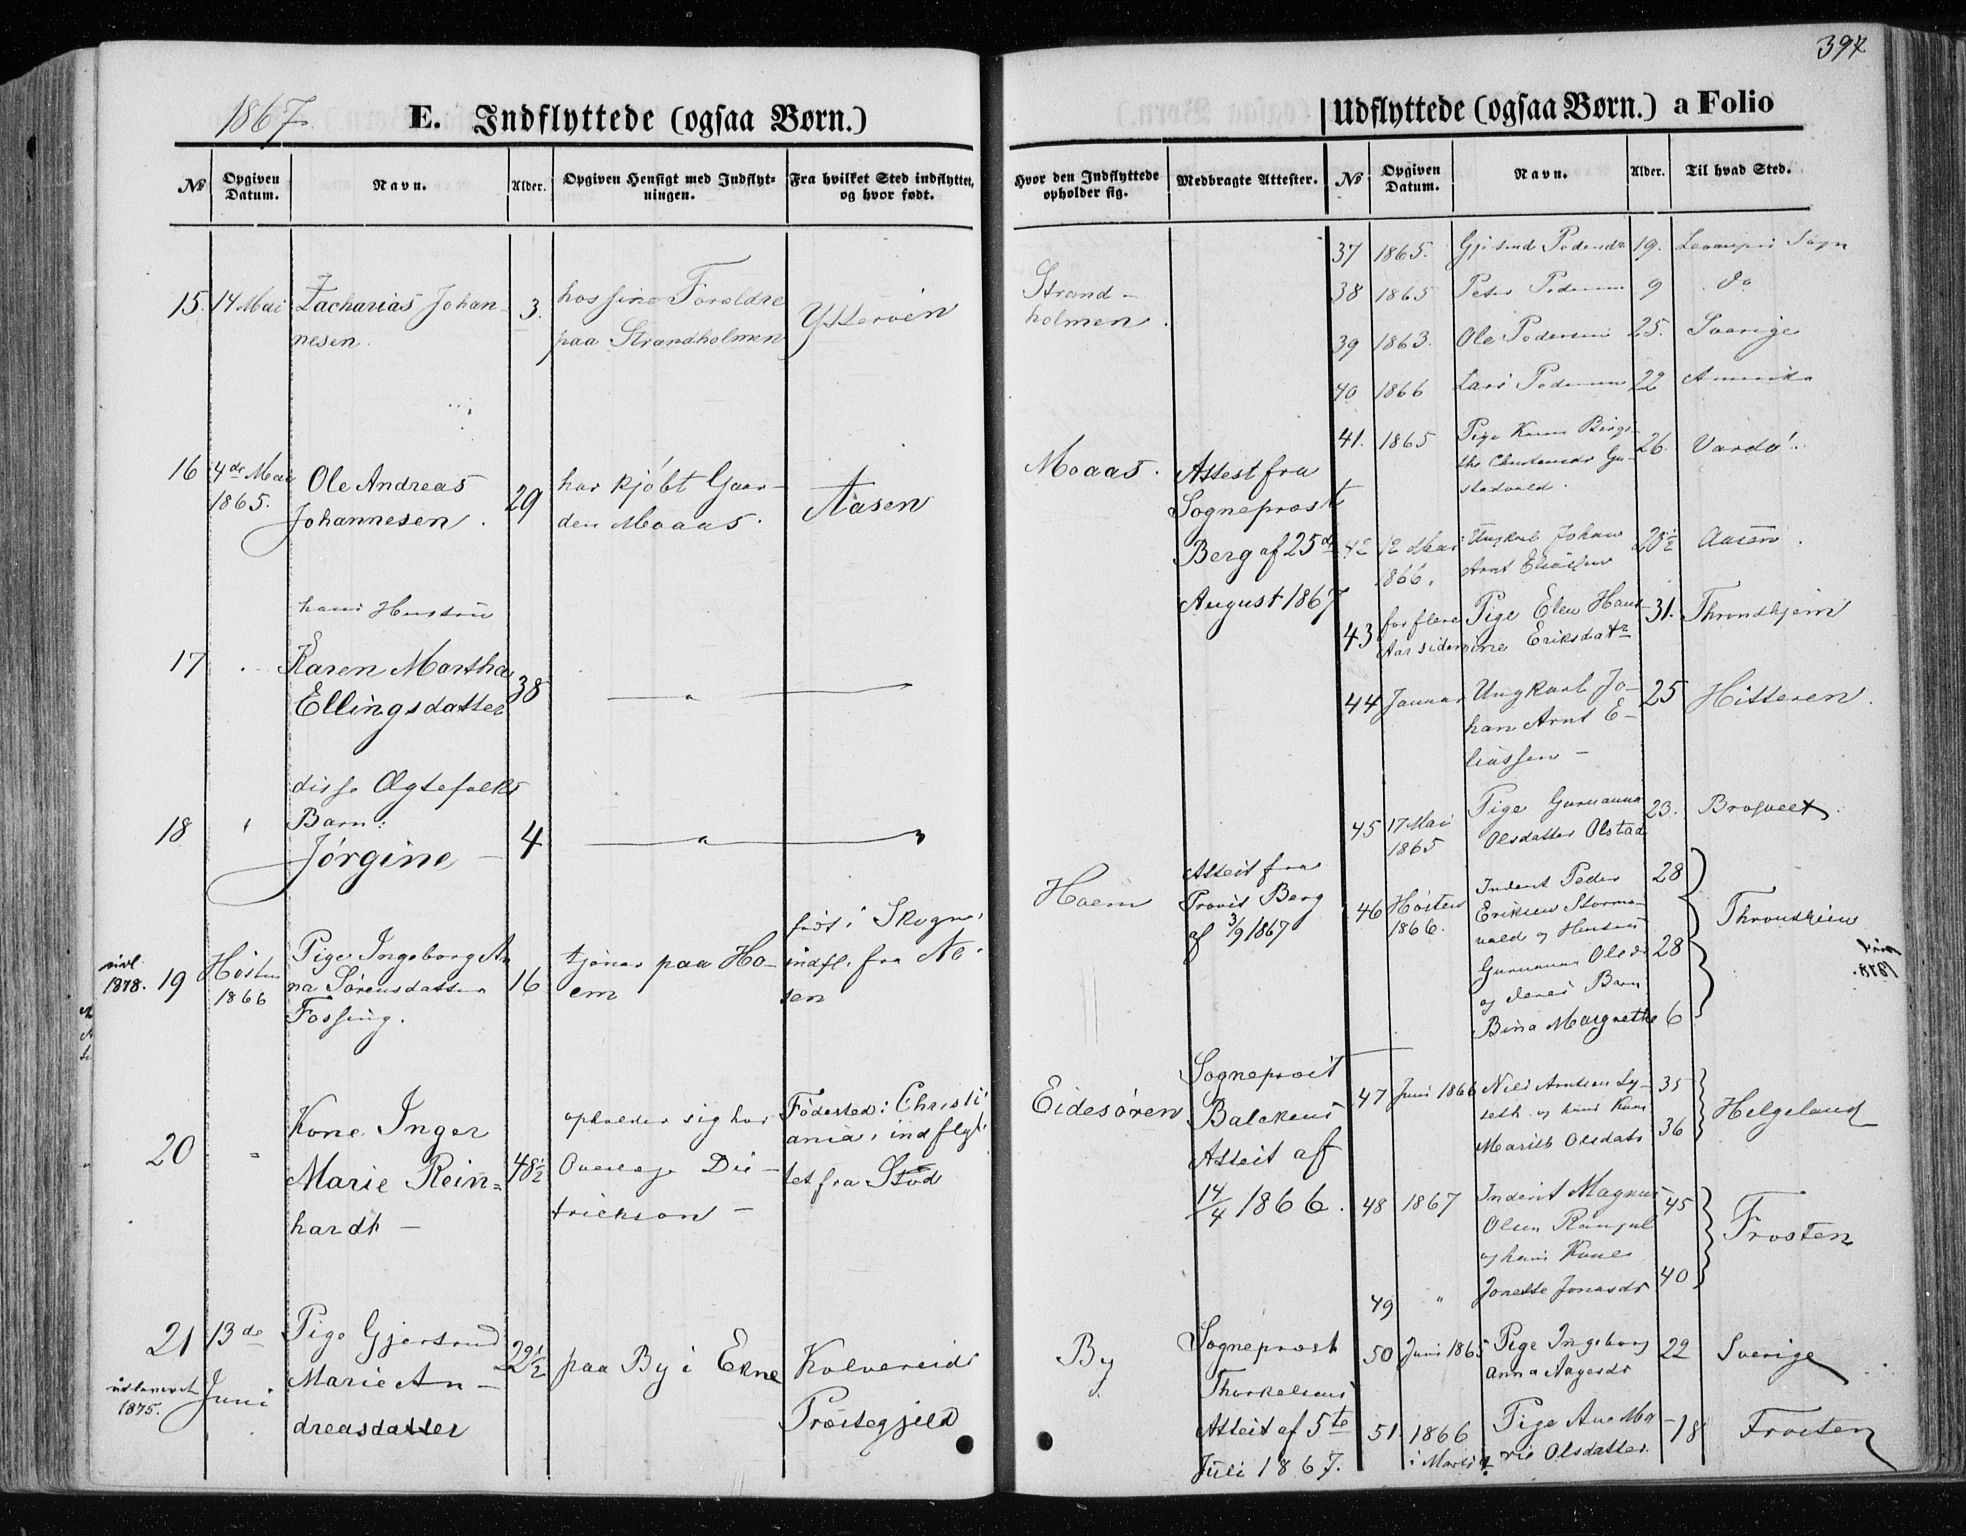 394
1867
E. Indflyttede (ogsaa Børn.)
Udflyttede (ogsaa Børn.) a Folio
№
Opgiven Datum.
Navn.
Alder.
Opgiven Hensigt med Indflyt-
ningen.
Fra hvilket Sted indflyttet,
og hvor født.
Hvor den Indflyttede
opholder sig.
Medbragte Attester.
№
Opgiven Datum.
Navn.
Alder.
Til hvad Sted.
15. 14 Mai
Zacharias Johan-
nesen.
3.
hos sine Foreldre
paa Strandholmen
Ytterøen
Strand-
holmen.
16 4de Mai
1865.
Ole Andreas
Johannesen.
29
har kjøbt Gaar-
den Moaas.
Aasen
Moaas.
Attest fra
Sogneprost
Berg af 25de
August 1867
hans Hustru
17
Karen Martha
Ellingsdatter
38
18 "
disse Ægtefolks
Barn:
Jørgine
4
sidl
1878.
19 Høsten
1866
Pige Ingeborg An
na Sørensdatter
Fossing.
16
tjener paa Ho-
em
født i Skogn,
indfl. fra Aa-
sen
Hoem
Attest fra
Provst Berg
af 3/9 1867
20 "
Kone Inger
Marie Rein-
hardt
48½
opholder sig hos
Overlæge Die-
trickson
Fødested: Christi-
ania, indflyt-
tet fra Stod
Eidesøren
Sogneprost
Balckens
Attest af
14/4 1866.
21 13de
Juni
1875.
Pige Gjertrud
Marie An-
dreasdatter
22½
paa By i Ekne
Kolvereids
Præstegjeld
By
Sogneprost
Thorkelsens
Attest af 5te
Juli 1867.
37 1865. 19. Sogn
38 1865 Peter Pedersen 9 do
39 1863. Ole Pedersen 25. Sverige
40 1866 Lars Pedersen 22 Amerika
41. 1865 Pige 26. Vardø.
42 12 Mai
1866.
Ungkarl Johan
Arnt Eliassen
Aasen.
43 for flere
Aar siden
Pige Elen Hans-
ine Eriksdatr
31. Throndhjem
44 Januar
Ungkarl Jo-
han Arnt E-
liassen
25 Hitteren.
45 17 Mai
1865
Pige Guruanna
Olsdatter Olstad
23.
46 Høsten
1866.
Inderst Peder
Eriksen
vald og Hustru
Guruanna Olsdr
og deres Barn
Bina Margrethe
28
28
6
Throndhjem
1878.
47 Juni 1866
Nils Arntsen Ly-
seth og hans Kone
Marith Olsdatr
35
36
Helgeland
48 1867
Inderst Magnus
Olsen
og hans Kone
45
49 "
Jonette Jonasdr
40
Frosten
50 Juni 1865
Pige Ingeborg
Anna Aagesdr
22 Sverige
51 1866
i Marts
Pige Ane Ma-
rie Olsdatter
18 Frosten